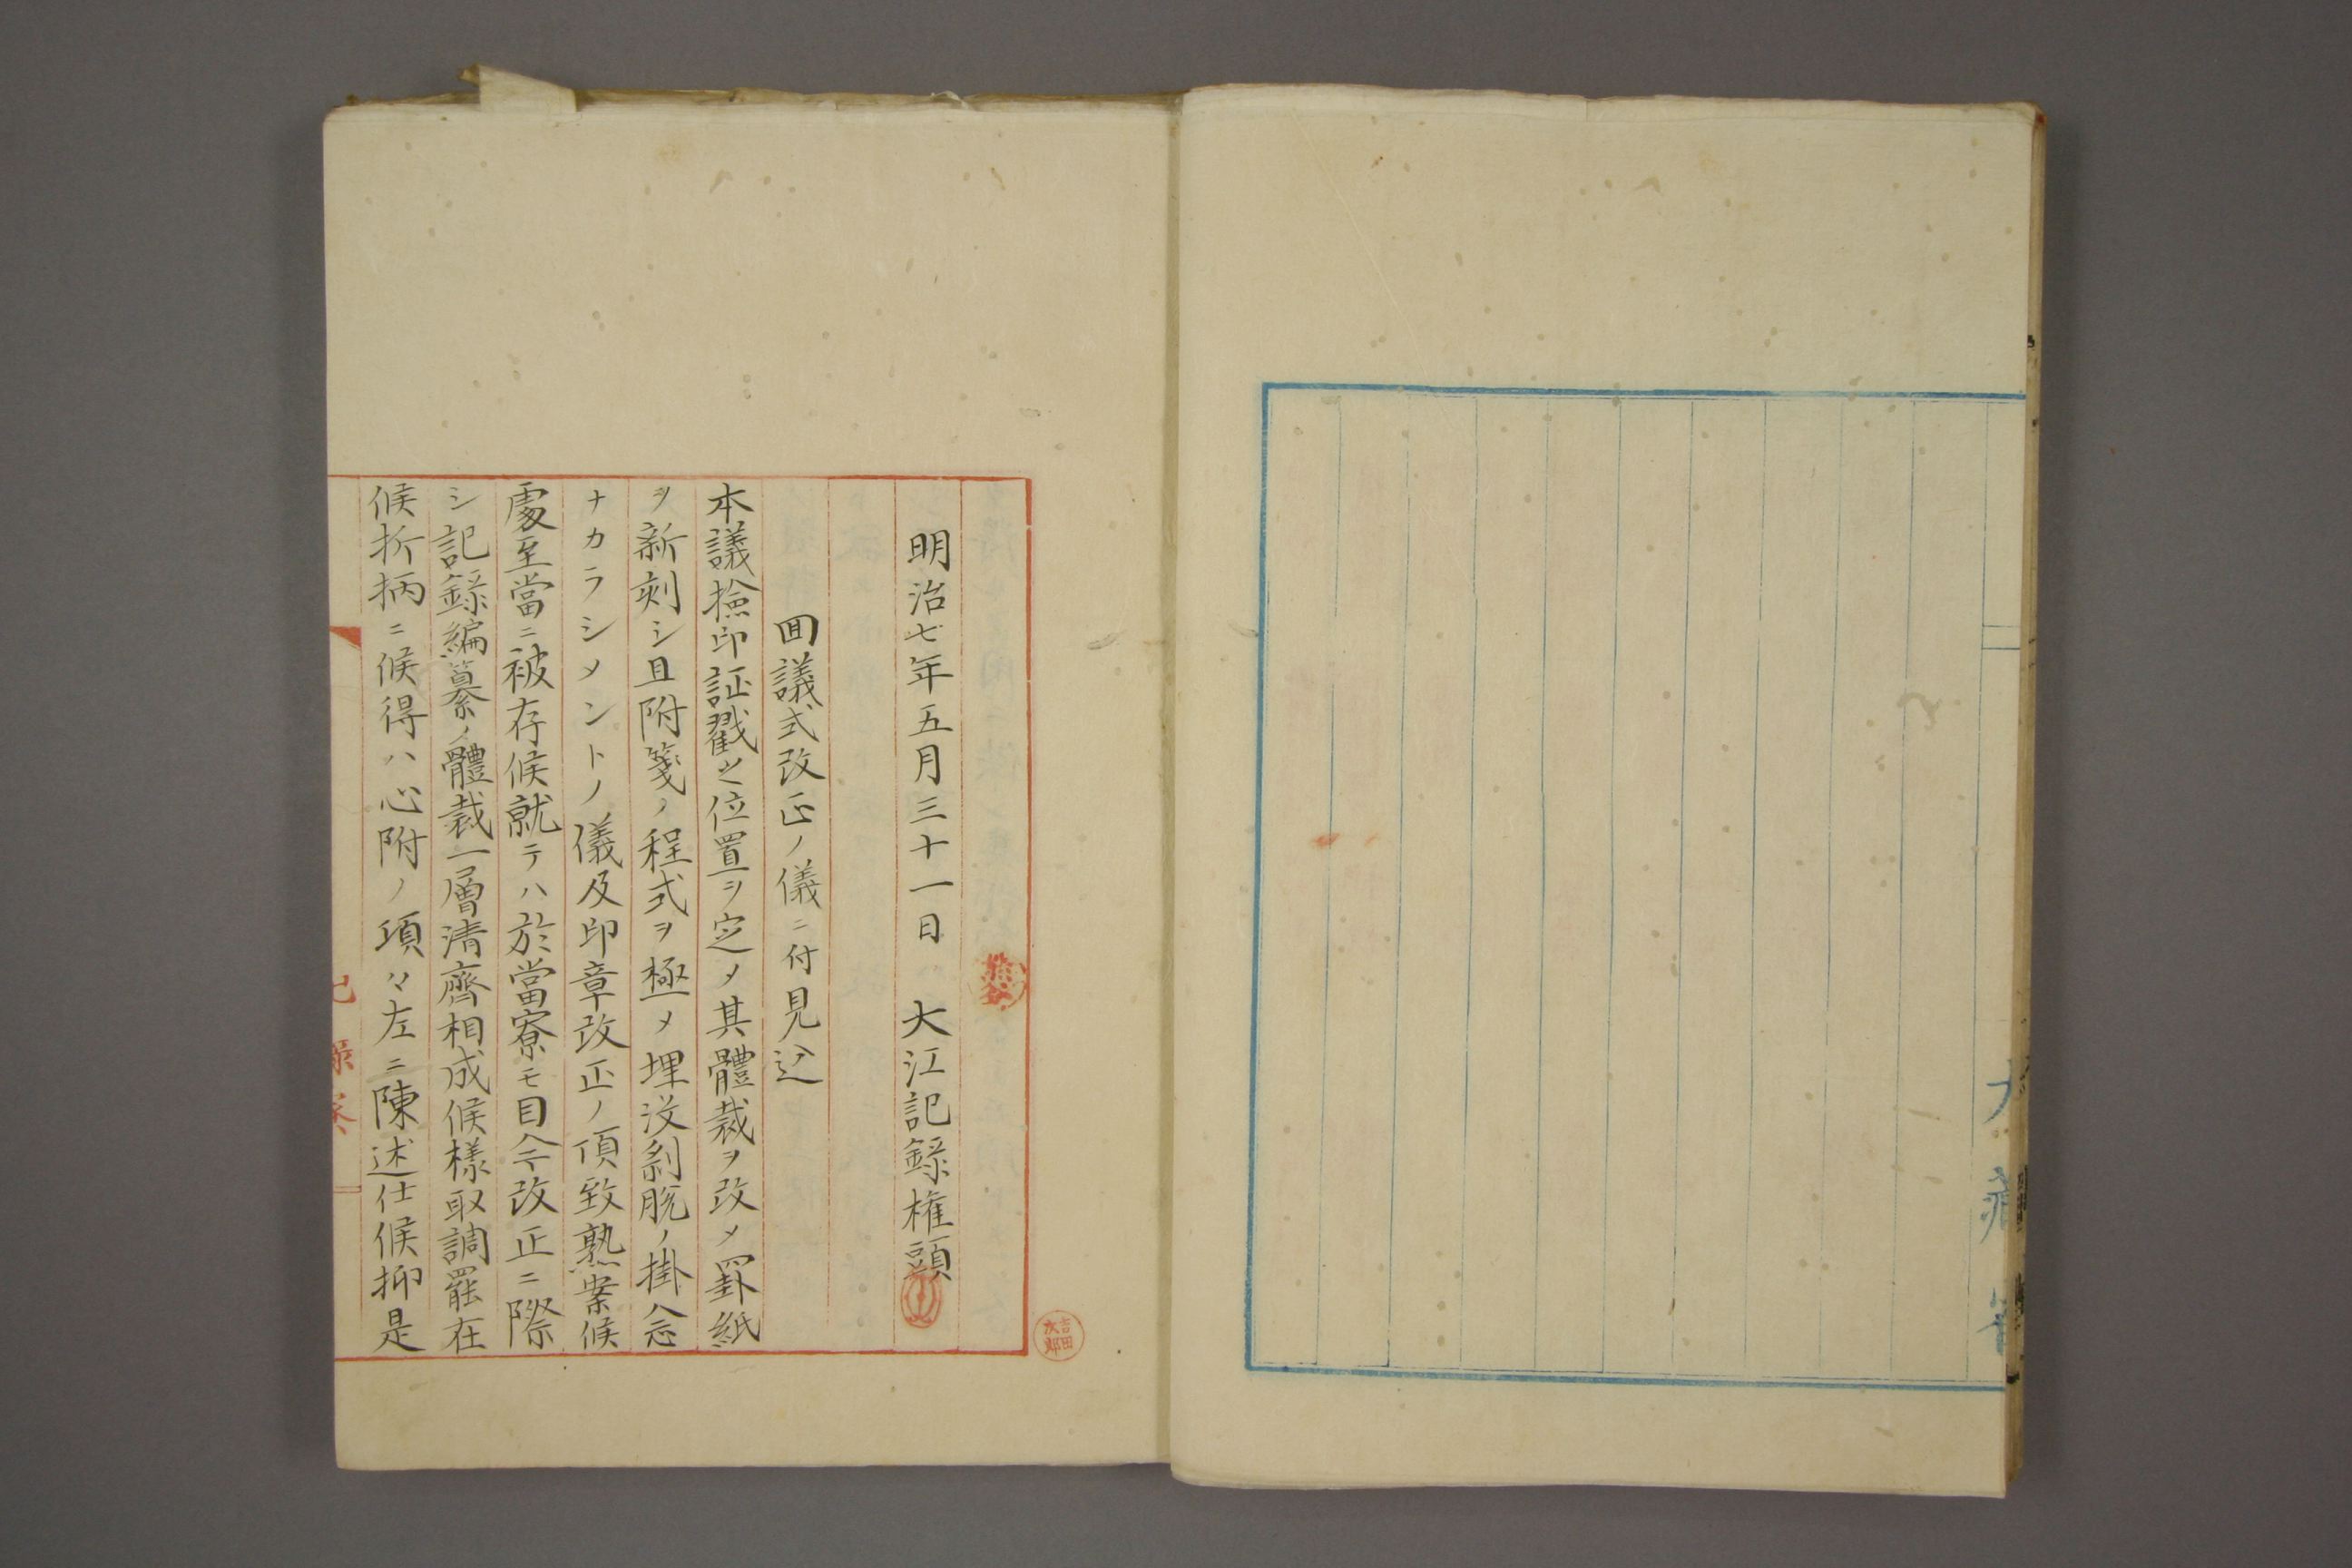 大藏省
明治七年五月三十一日 大江記録権頭
吉田次郎
囬議式改正ノ儀ニ付見込
本議撿印証戳之位置ヲ定メ其體裁ヲ改メ罫紙
ヲ新刻シ且附箋ノ程式ヲ極メ埋没剝脱ノ掛念
ナカラシメントノ儀及印章改正ノ項致熟案候
處至當ニ被存候就テハ於當寮モ目今改正ニ際
シ記録編纂ノ體裁一層清齊相成候樣取調罷在
候折柄ニ候得ハ心附ノ項々左ニ陳述仕候抑是
記録寮